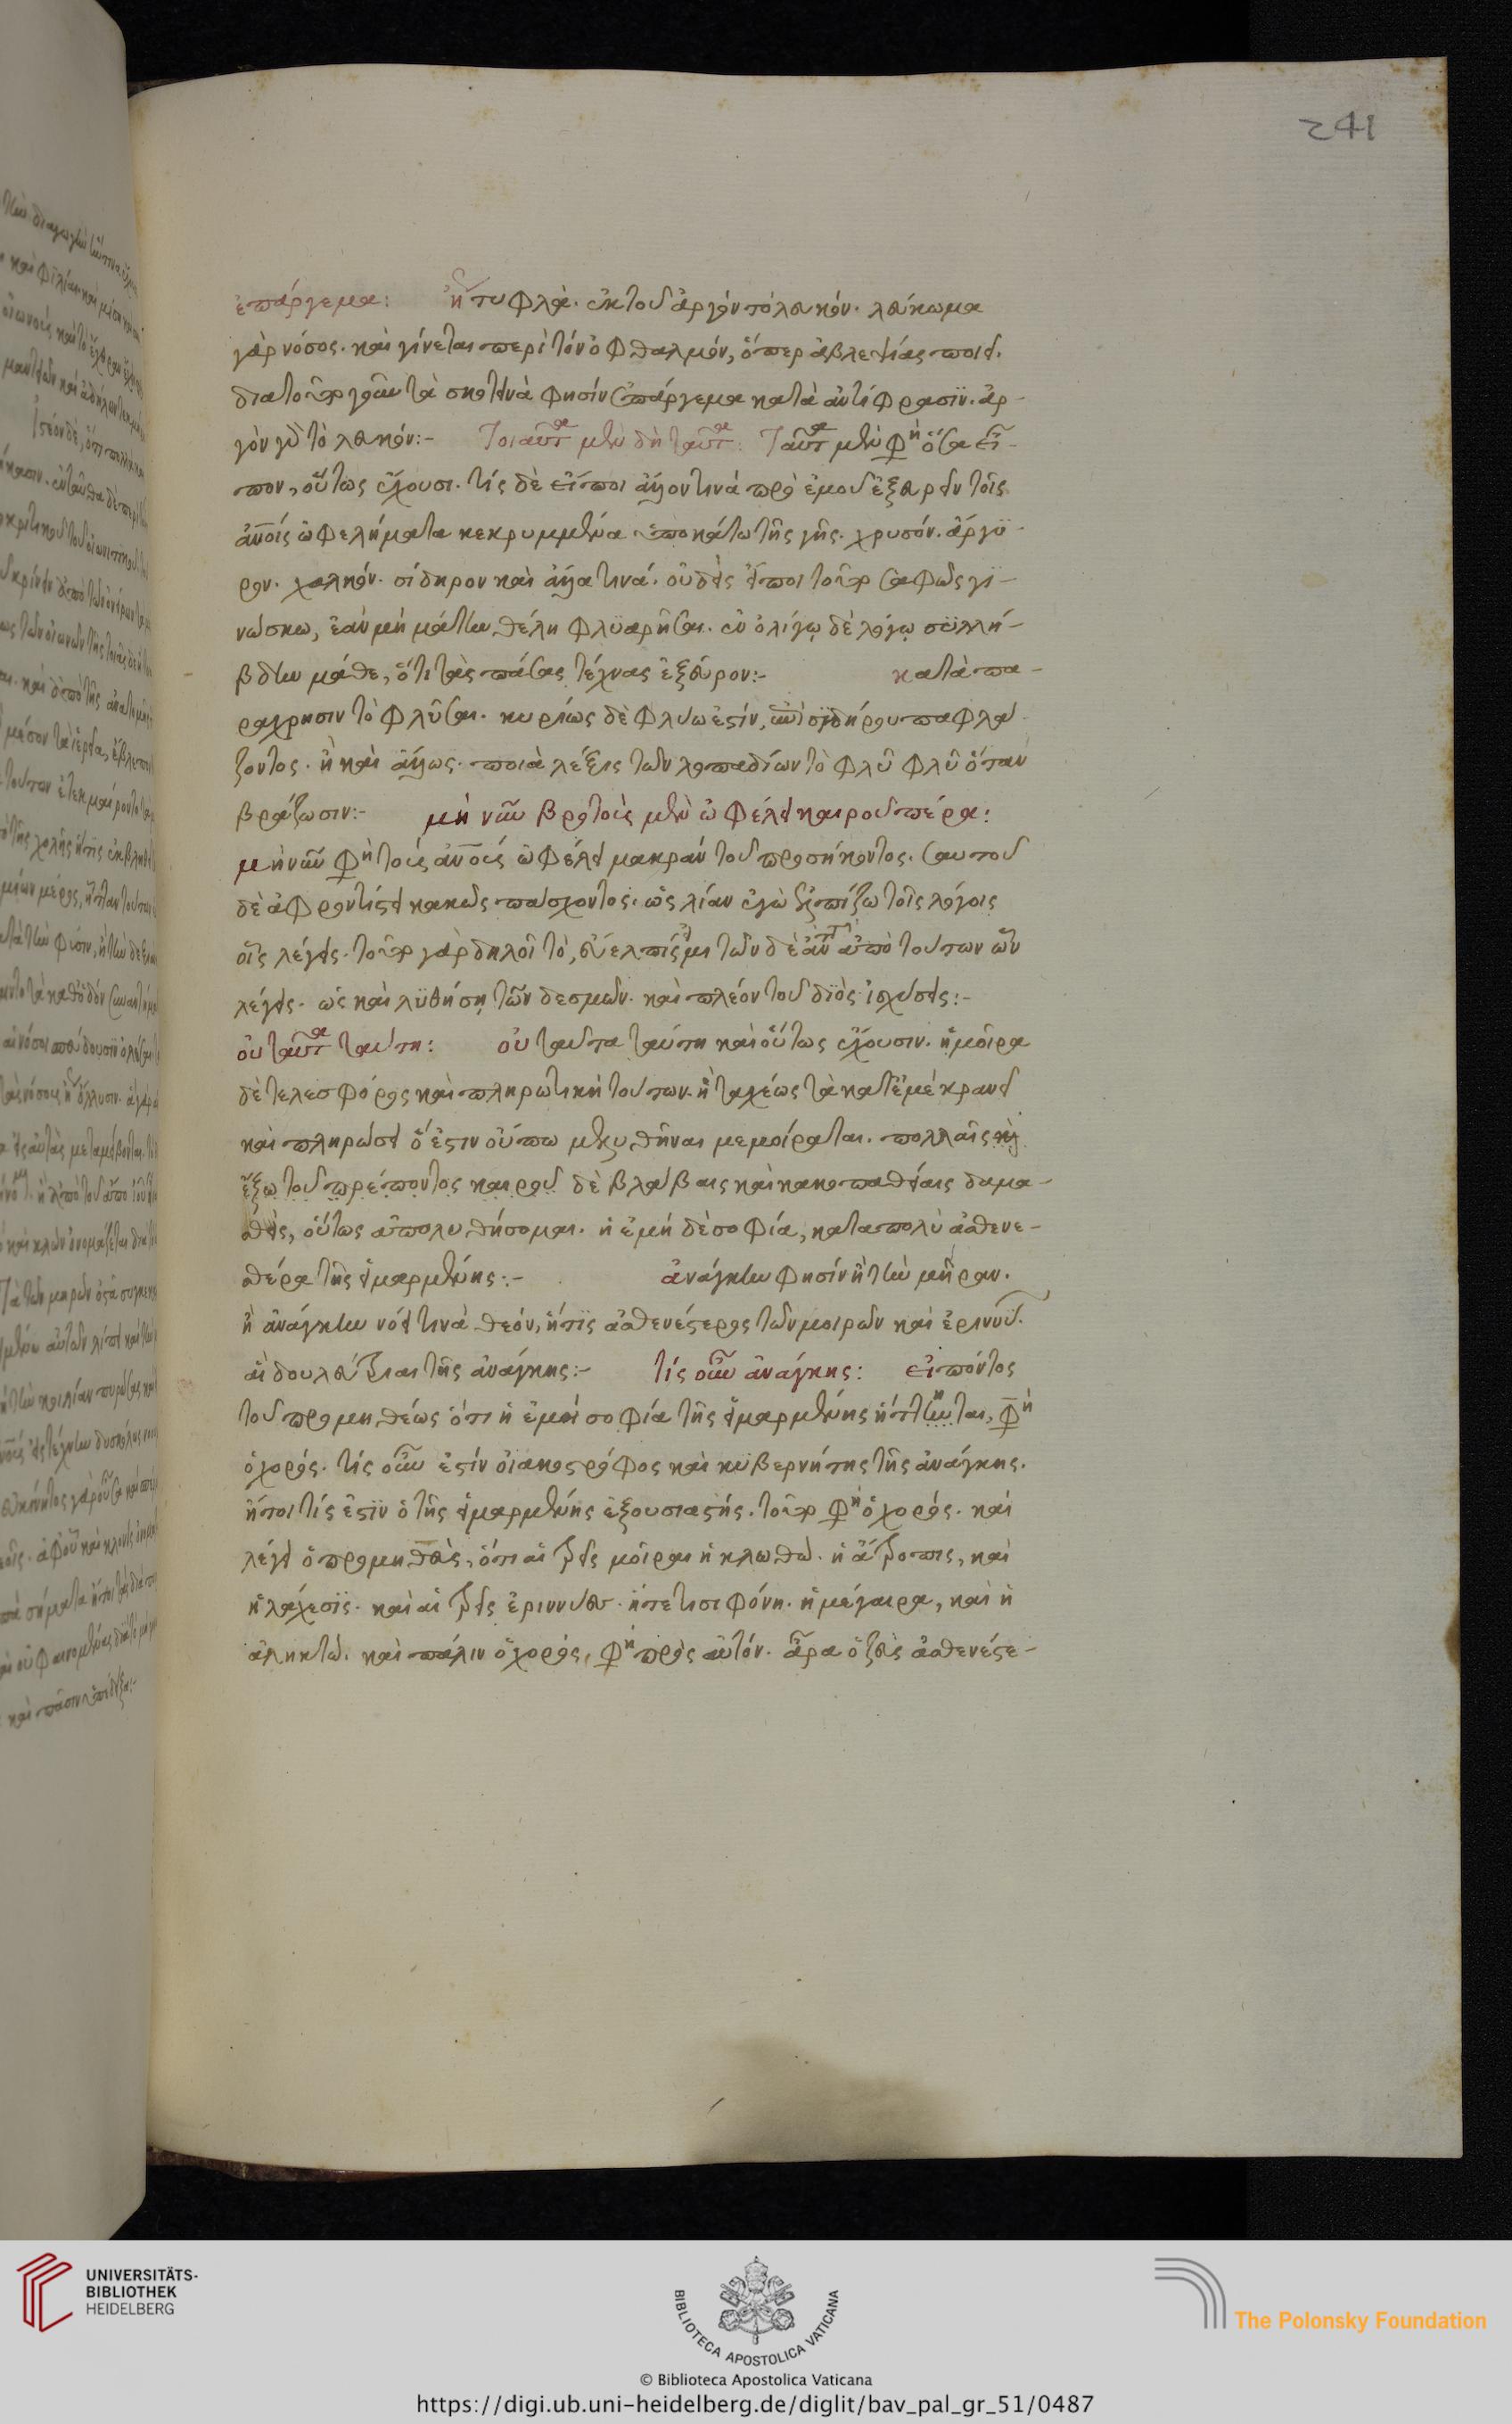 241
ἐπάργεμα: ἢ τυφλά. ἐκ τοῦ ἀργόν τὸ λευκόν. λεύκωμα
γὰρ νόσος. καὶ γίνεται περὶ τὸν ὀφθαλμόν, ὅπερ ἀβλεψίας ποιεῖ.
διατοῦτο γοῦν τὰ σκοτεινά φησὶν ἐπάργεμα κατὰ ἀντίφρασϊν. ἀρ-
γὸν γὰρ τὸ λευκόν:- Τοιαῦτα μὲν δὴ ταῦτα: Ταῦτα μὲν φη ὅσα εἶ-
πον, οὕτως ἔχουσι. τίς δὲ εἴποι ἄλλον τινά πρὸ ἐμοῦ ἐξευρεῖν τοῖς
ἀνοις ὠφελήματα κεκρυμμένα ὑποκάτω τῆς γῆς. χρυσόν. ἄργϋ-
ρον. χαλκόν. σίδηρον καὶ ἄλλα τινά. οὐδεὶς εἴποι τοῦτο σαφῶς γϊ-
νώσκω, ἐὰν μὴ μάτην θέλη φλϋαρῆσαι. ἐν ὀλίγῳ δὲ λόγῳ σϋλλή-
βδην μάθε, ὅτι τὰς πάσας τέχνας ἐξεῦρον:- κατὰ πα-
ραχρησιν τὸ φλῦσαι. κυρίως δὲ φλύω ἐστίν, ἀντὶ σϊδήρου παφλά-
ζοντος. ἢ καὶ ἄλλως. ποιὰ λέξις τῶν λοπαδίων τὸ φλῦ φλῦ ὅταν
βράζωσιν:- μή νῦν βροτοὺς μὲν ὠφέλει καιροῦ πέρα:
μὴ νῦν φη τοὺς ἀνους ὠφέλει μακράν τοῦ προσήκοντος. σαυτοῦ
δὲ ἀφροντίστει κακῶς πάσχοντος. ὡς λίαν ἐγὼ ἐλπίζω τοῖς λόγοις
οἷς λέγεις. τοῦτο γὰρ δηλοῖ τὸ, εὔελπίς εἰμι τῶνδε ἀντὶ ἀπὸ τούτων ὧν
λέγεις. ὡς καὶ λϋθήσῃ τῶν δεσμῶν. καὶ πλέον τοῦ διὸς ἰσχύσεις:-
οὐ ταῦτα ταύτη: οὐ ταῦτα ταύτη καὶ οὕτως ἔχουσιν. ἡ μοῖρα
δὲ τελεσφόρος καὶ πληρωτικὴ τούτων. ἢ ταχέως τὰ κατ' ἐμὲ κρανεῖ
καὶ πληρώσει ὅ ἐστιν οὔπω μὲν λυθῆναι μεμοίραται. πολλαῖς
ἔξω τοῦ πρέποντος καιροῦ δὲ βλάβαις καὶ κακοπαθείαις δαμα-
σθεὶς, οὕτως ἀπολυθήσομαι. ἡ ἐμὴ δὲ σοφία, καταπολὺ ἀσθενε-
σθέρα τῆς εἱμαρμένης:- ἀνάγκην φησὶν ἢ τὴν μοῖραν.
ἢ ἀνάγκην νόει τινὰ θεόν, ἥτϊς ἀσθενέστερος τῶν μοιρῶν καὶ ἐρινύων.
αἳ δουλεύτριαι τῆς ἀνάγκης:- τίς οὖν ἀνάγκης: εἰπόντος
τοῦ προμηθέως ὅτι ἡ ἐμοὶ σοφία τῆς εἱμαρμένης ἥττηται, φη
ὁ χορός. τίς οὖν ἐστίν οἰακοστρόφος καὶ κϋβερνήτης τῆς ἀνάγκης.
ἤτοι τίς ἐστϊν ὁ τῆς εἱμαρμένης ἐξουσιαστής. τοῦτο φη ὁ χορός. καὶ
λέγει ὁ προμηθεὺς, ὅτι αἱ τρεῖς μοῖραι ἡ κλωθὼ. ἡ ἄτροπις, καὶ
ἡ λάχεσϊς. καὶ αἱ τρεῖς ἐριννύες. ἥτε τισιφόνη. ἡ μέγαιρα, καὶ ἡ
ἀληκτώ. καὶ πάλιν ὁ χορός, φη πρὸς αὐτόν. ἆρα ὁ ζεὺς ἀσθενέστε-
UNIVERSITÄTS-
BIBLIOTHEK
HEIDELBERG
BIBLIOTECA APOSTOLICA VATICANA
The Polonsky Foundation
© Biblioteca Apostolica Vaticana
https://digi.ub.uni-heidelberg.de/diglit/bav_pal_gr_51/0487